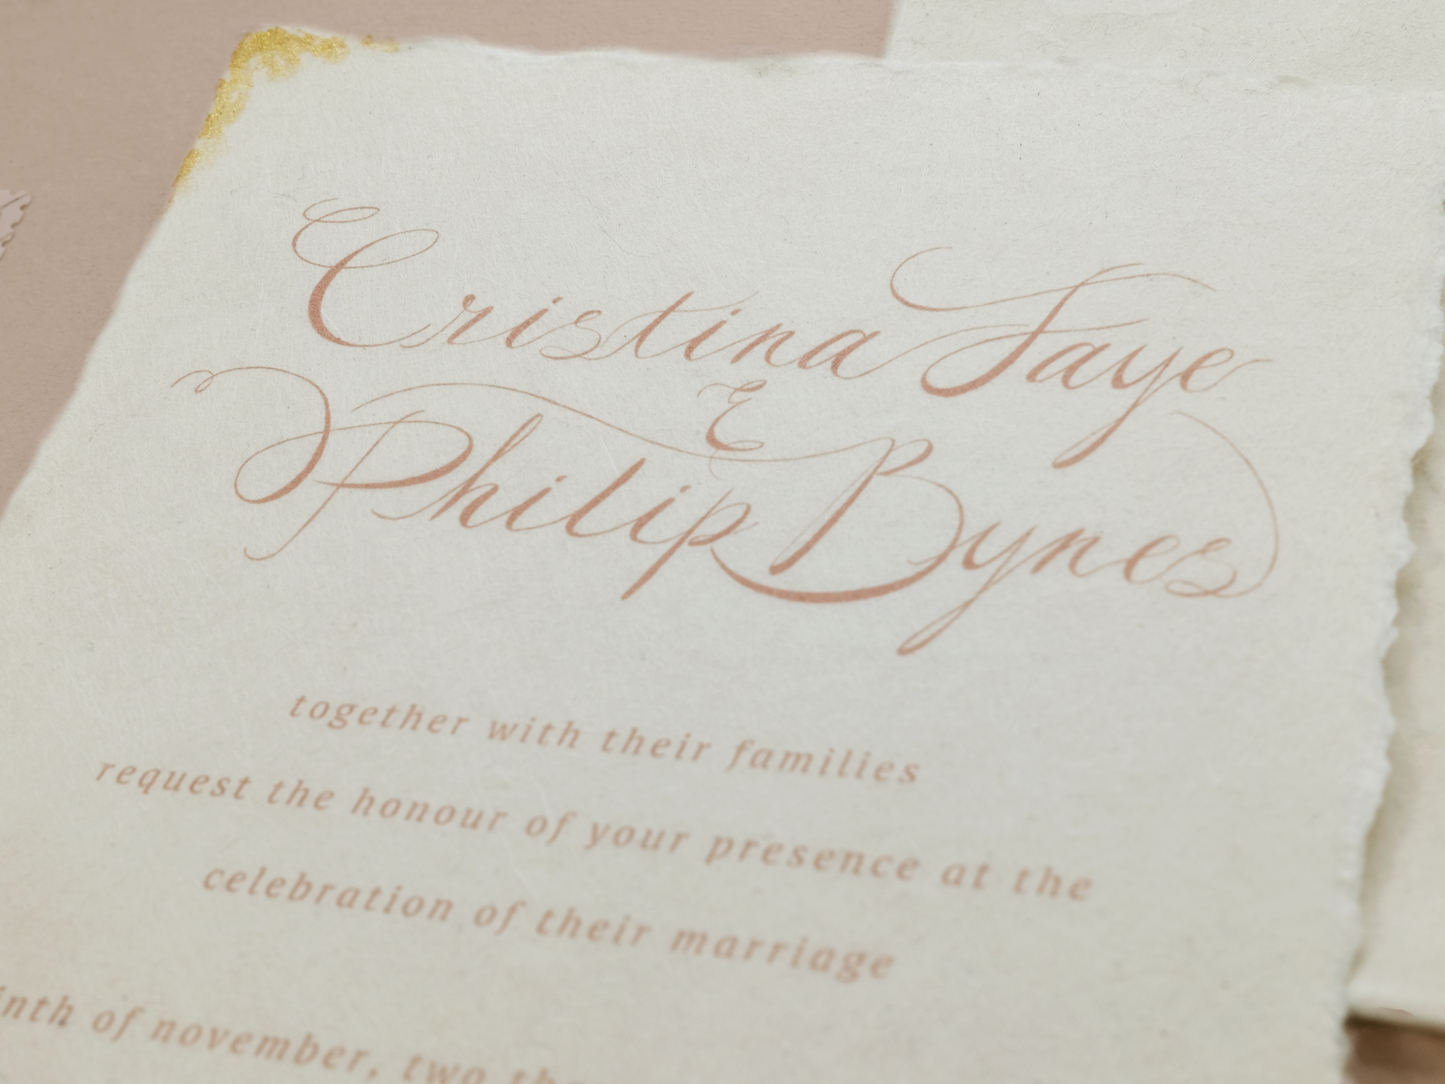 Cristina Faye
&
Philip Bynes
together with their families
request the honour of your presence at the
celebration of their marriage
of november, two